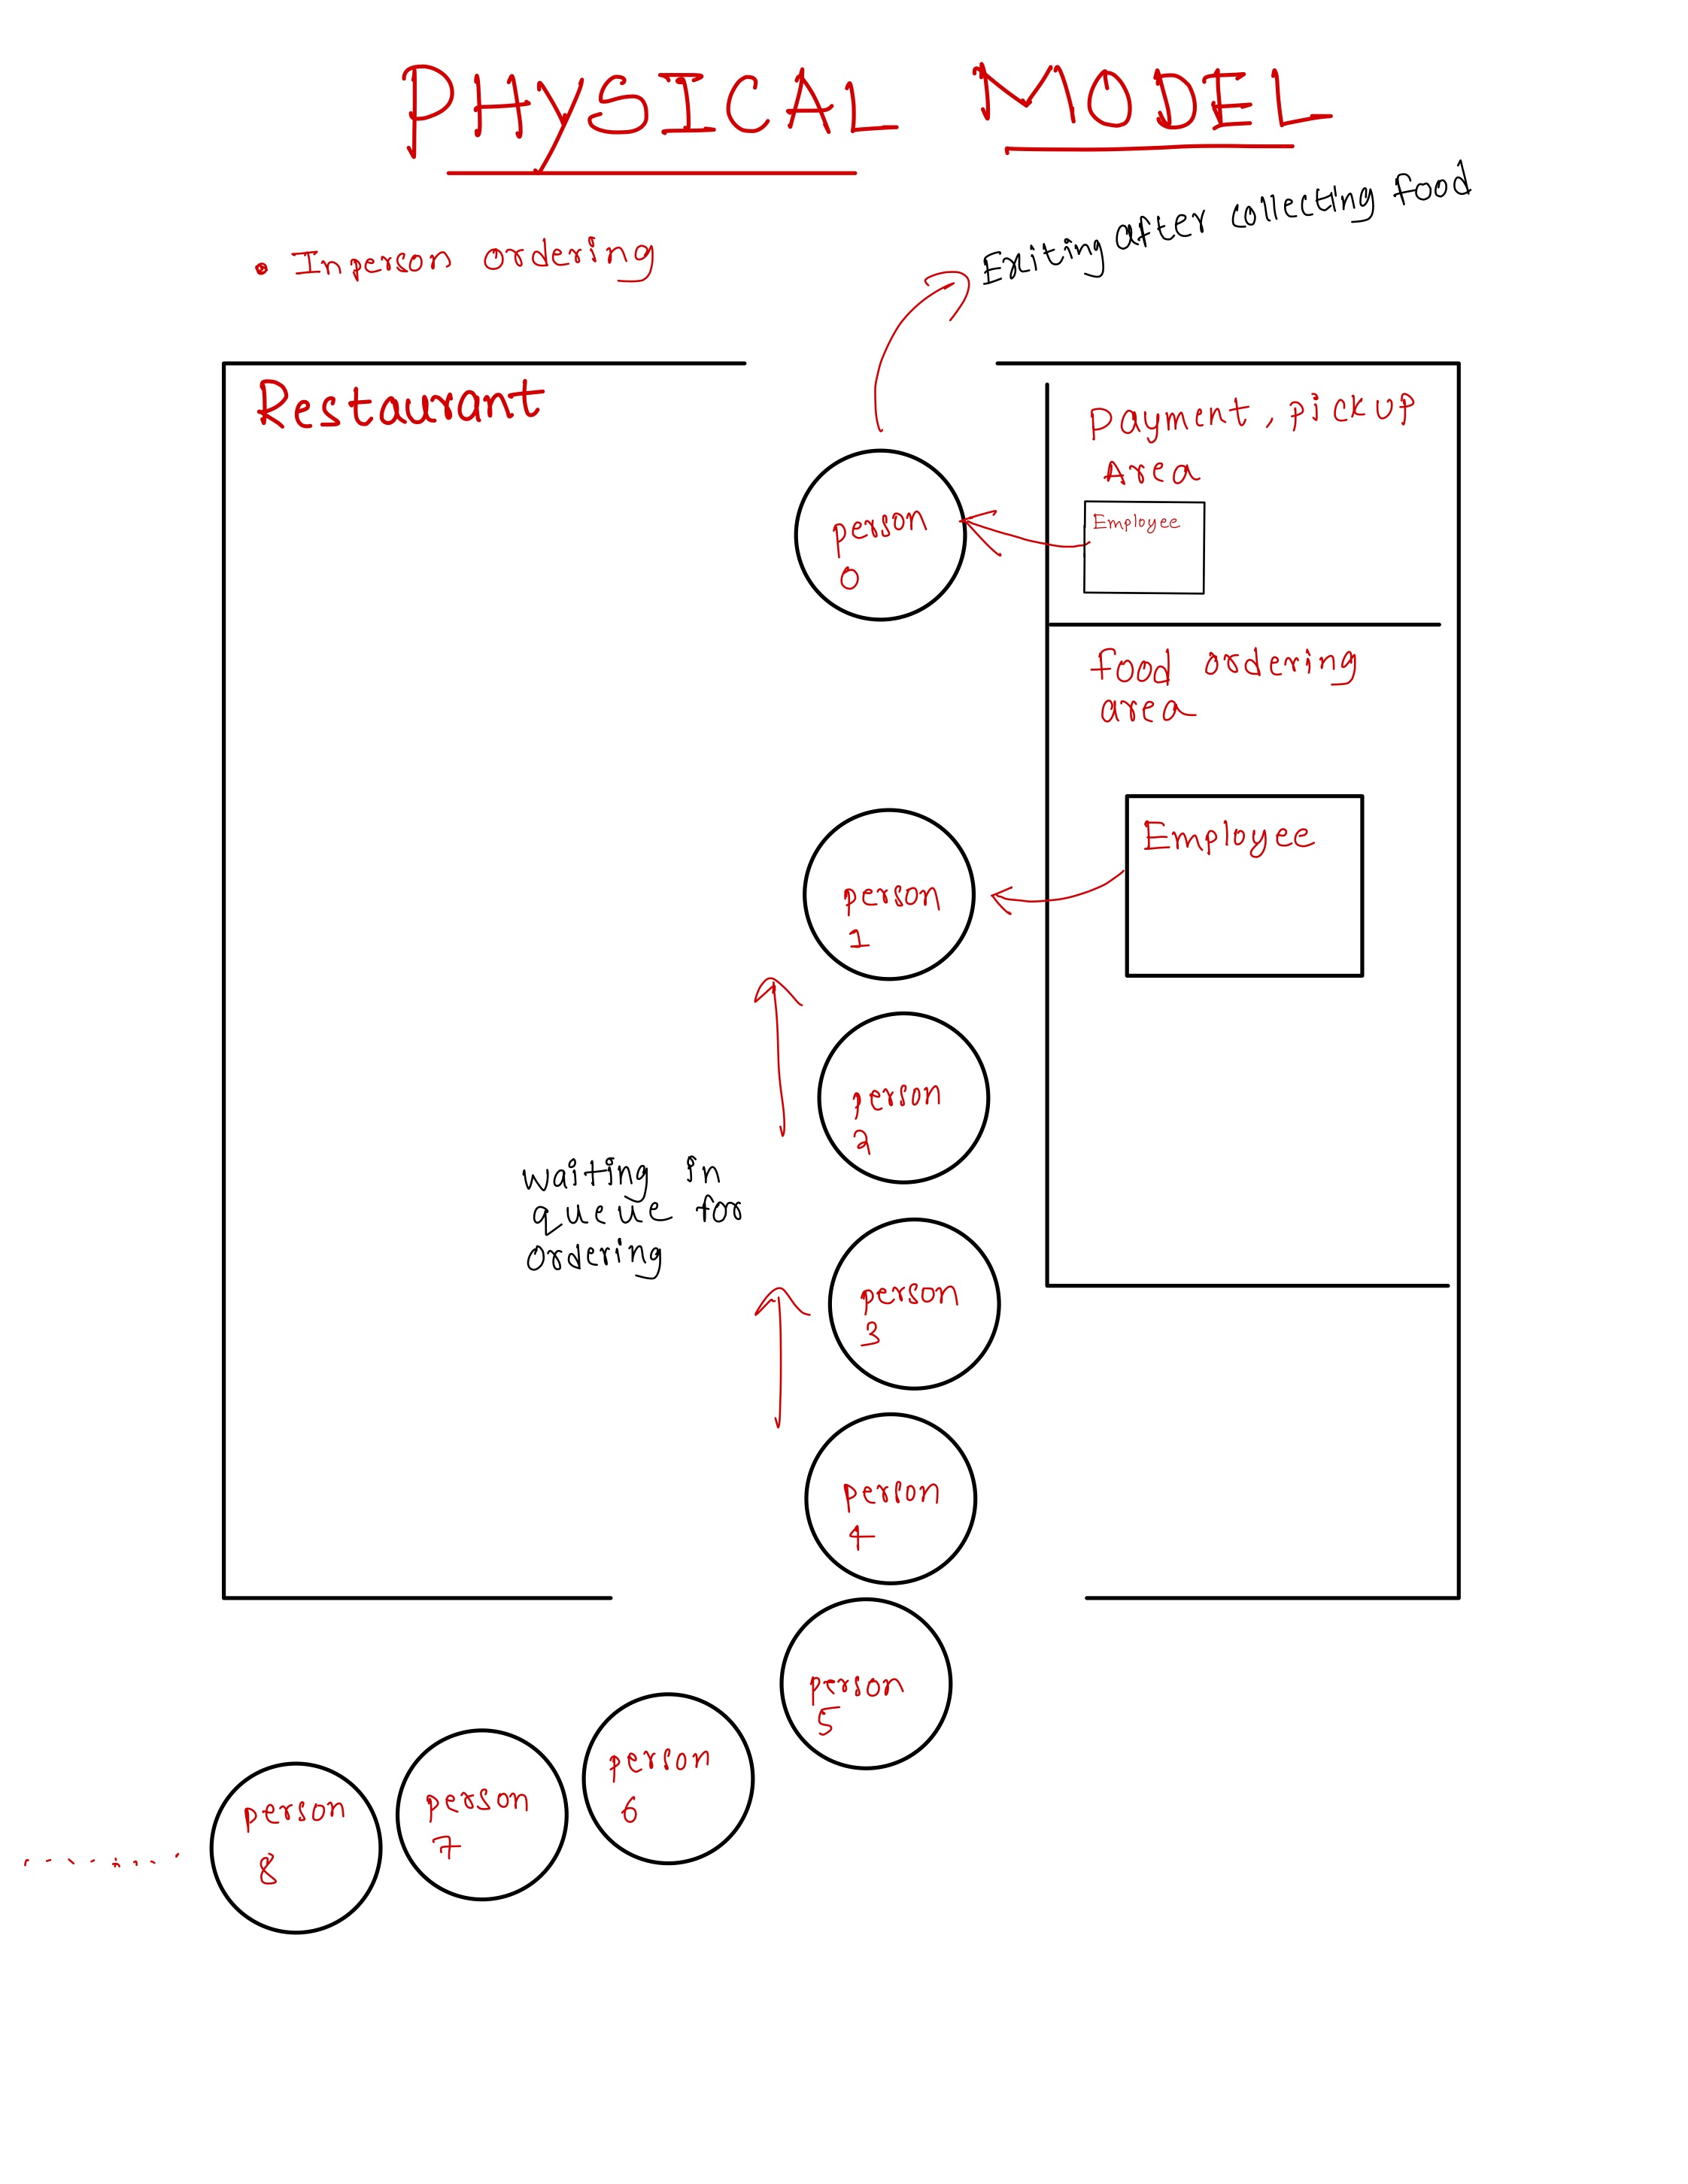 PHYSICAL MODEL
• Inperson ordering
Exiting after collecting food
Restaurant
Payment, pickup
Area
Employee
person
0
food ordering
area
Employee
person
1
person
2
waiting in
queue for
ordering
person
3
person
4
person
5
person
6
person
7
person
8